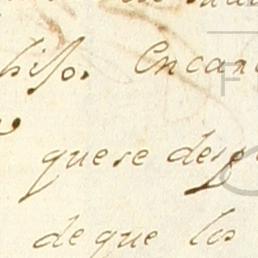 hiſo. Encan
que se desp
de que los